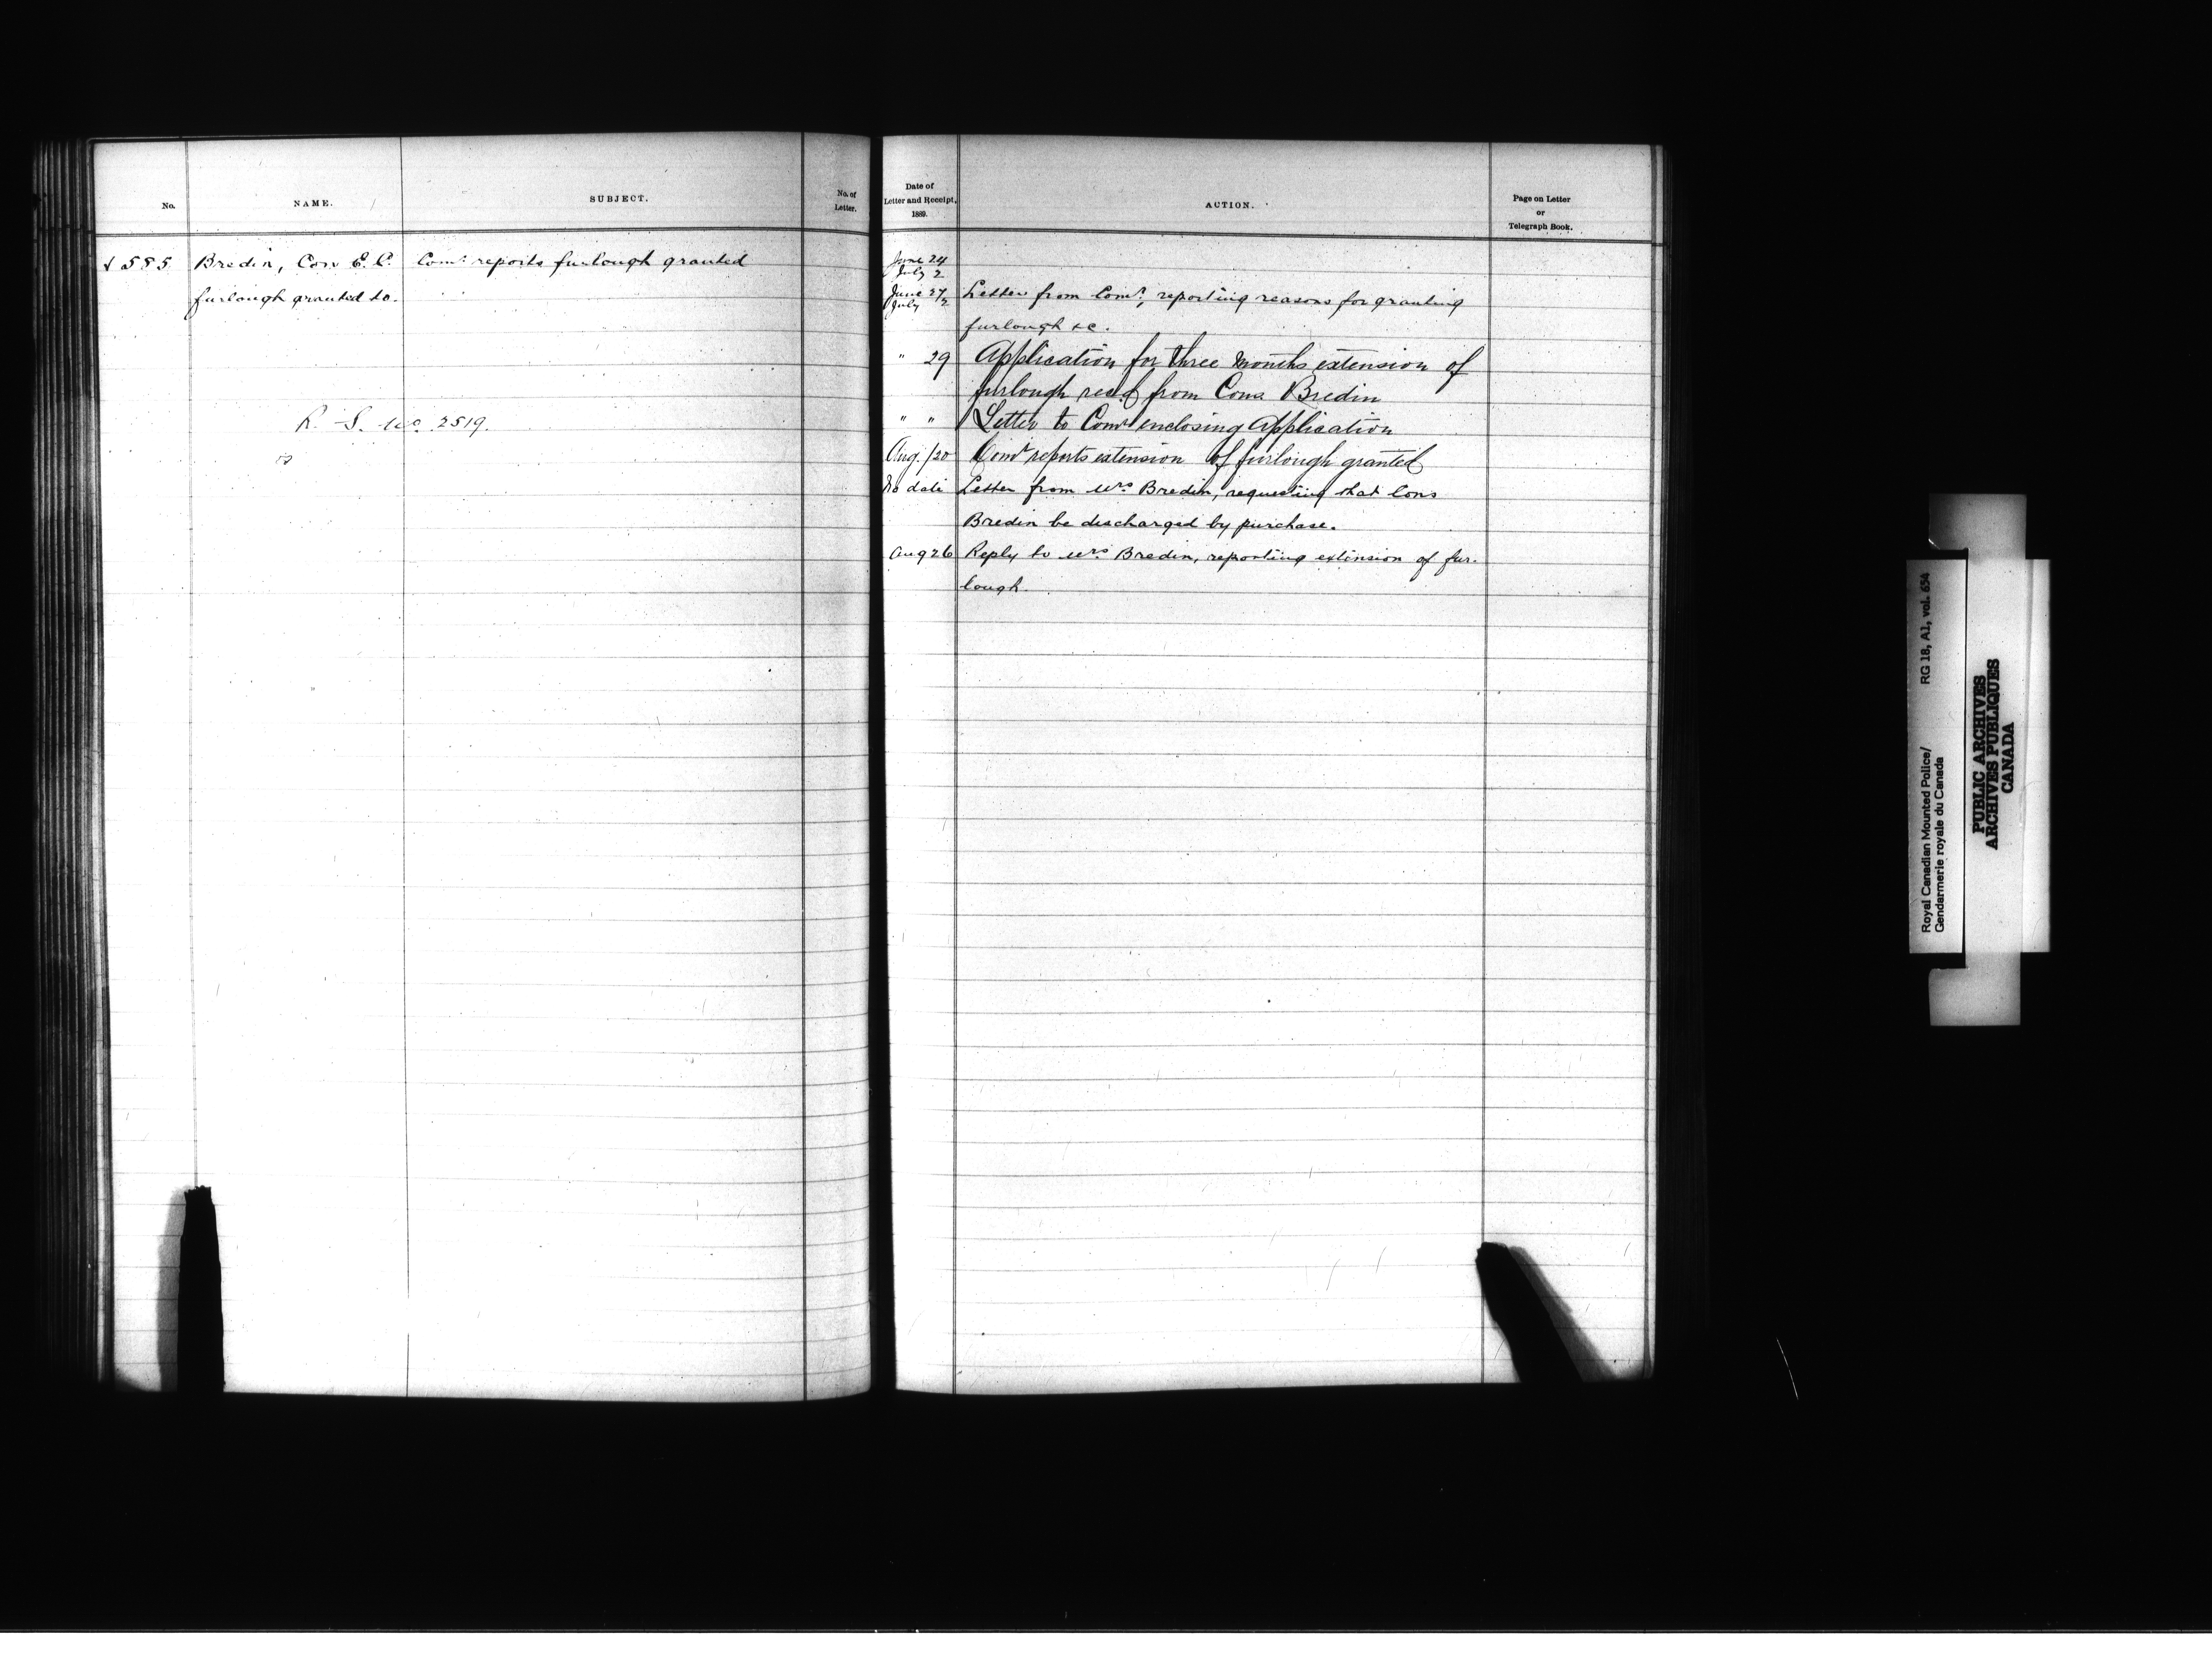 No.
NAME.
SUBJECT.
No. of
Letter.
√ 585 Bredin, Con E. C. Comr. reports furlough granted
furlough granted to.
R. S. No. 2519.
Date of
Letter and Receipt,
1889.
ACTION.
Page on Letter
or
Telegraph Book.
June 24
July 2
June 27 Letter from Comr., reporting reasons for granting
July 2
furlough &c.
" 29 Application for three months extension of
furlough recd from Cons Bredin
" " Letter to Comr enclosing Application
Aug. /20 Comr reports extension of furlough granted
No date Letter from Mrs Bredin, requesting that Cons
Bredin be discharged by purchase.
Aug 26 Reply to Mrs Bredin, reporting extension of fur-
lough.
Royal Canadian Mounted Police/
Gendarmerie royale du Canada
RG 18, A1, vol. 654
PUBLIC ARCHIVES
ARCHIVES PUBLIQUES
CANADA